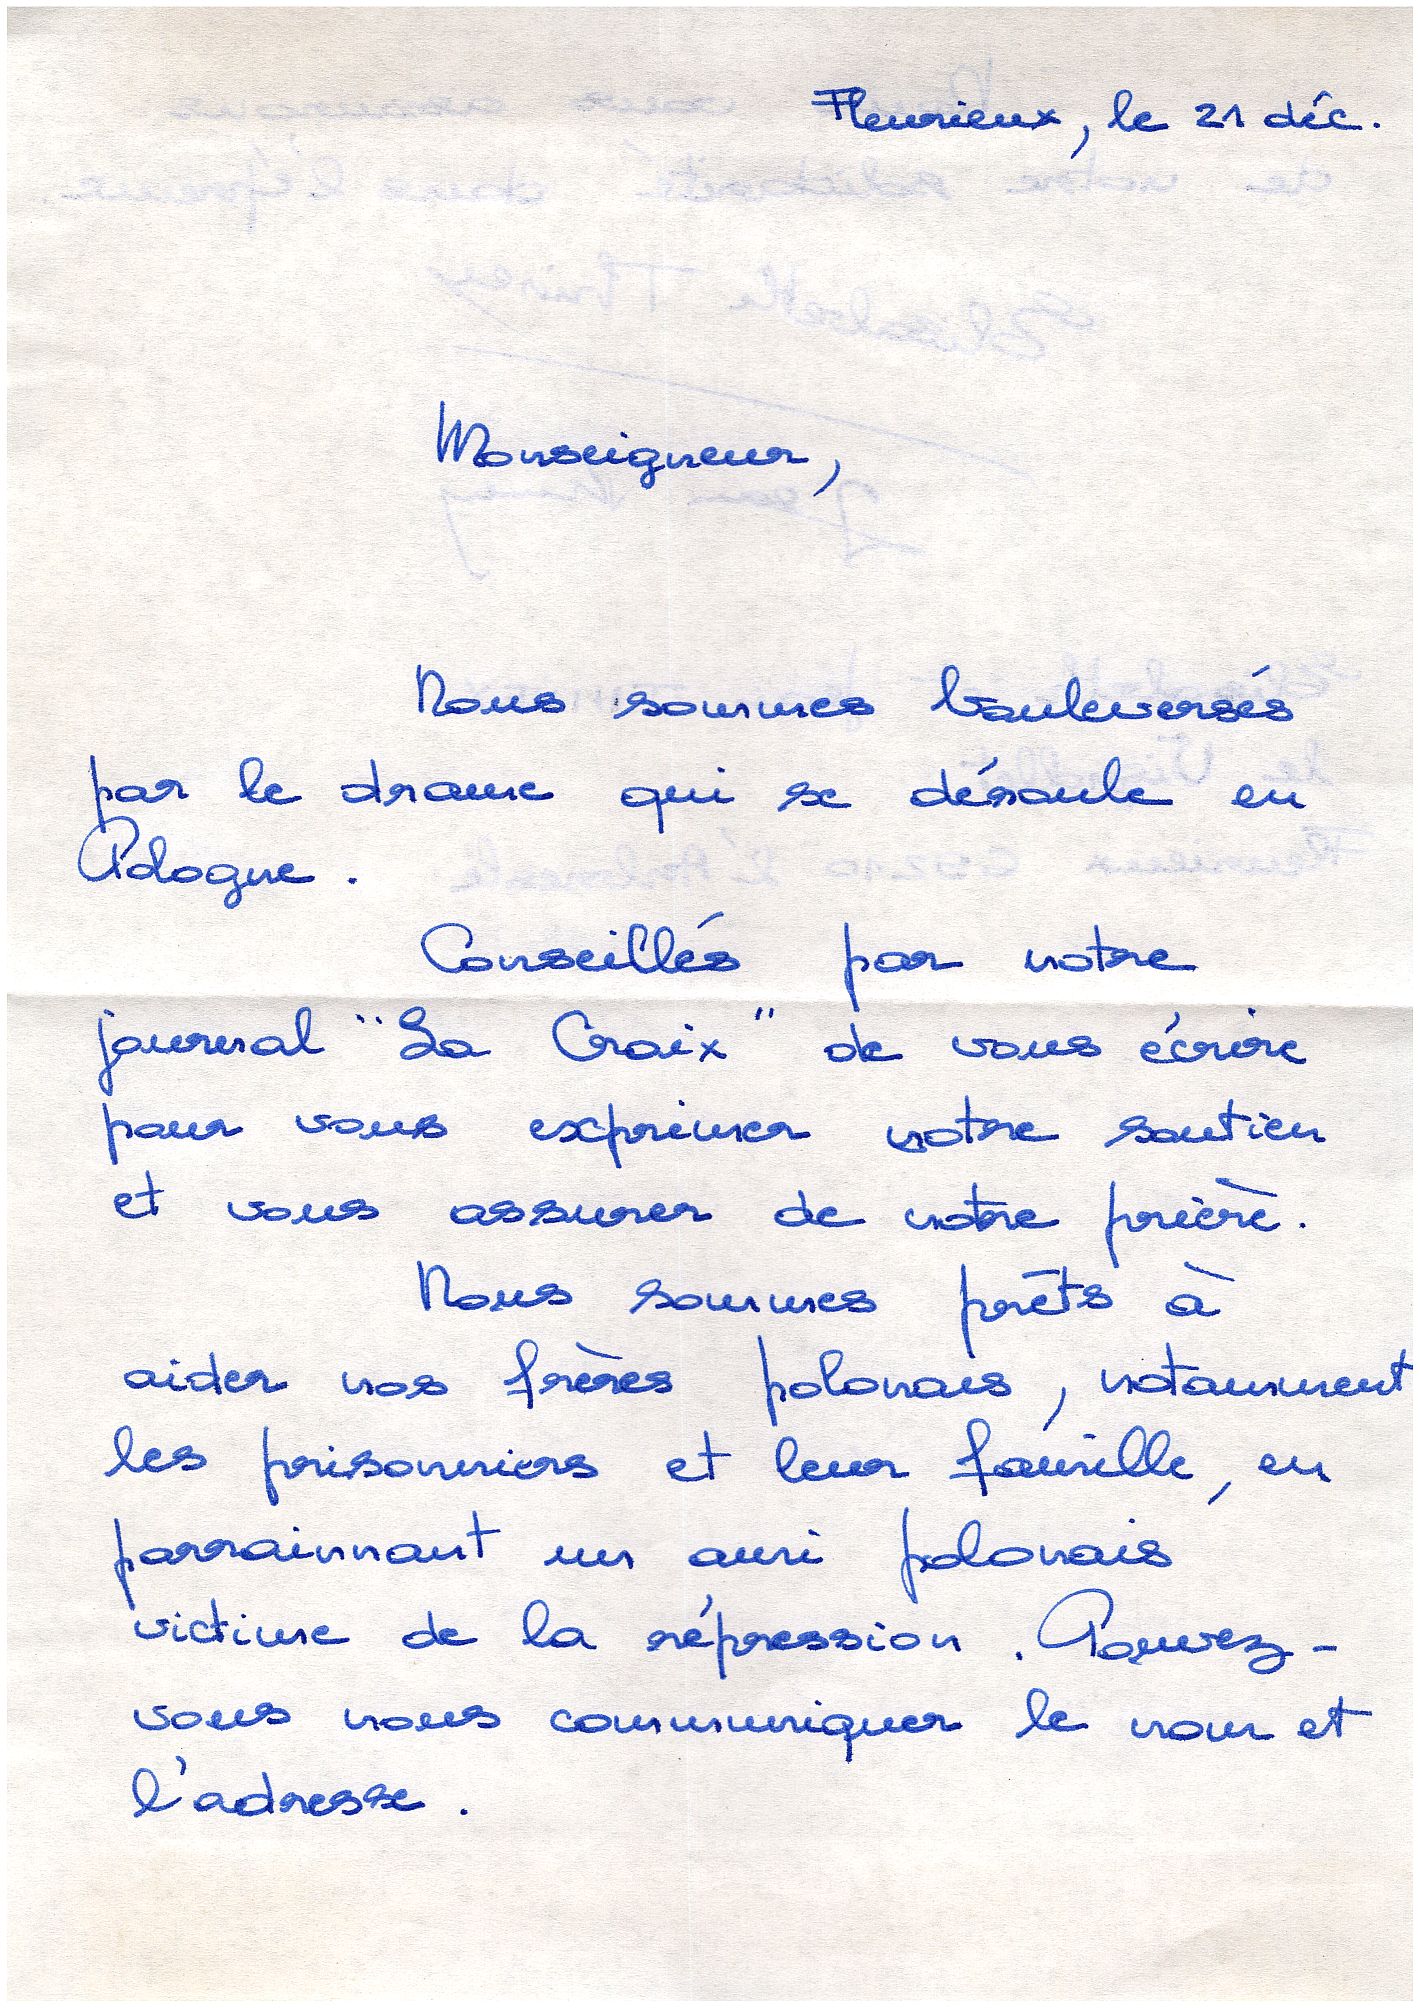 Fleurieux, le 21 déc.
Monseigneur,
Nous sommes bouleversés
par le drame qui se déroule en
Pologne.
Conseillés par notre
journal "La Croix" de vous écrire
pour vous exprimer notre soutien
et vous assurer de notre prière.
Nous sommes prêts à
aider nos frères polonais, notamment
les prisonniers et leur famille, en
parrainnant un ami polonais
victime de la répression. Pouvez-
vous nous communiquer le nom et
l'adresse.